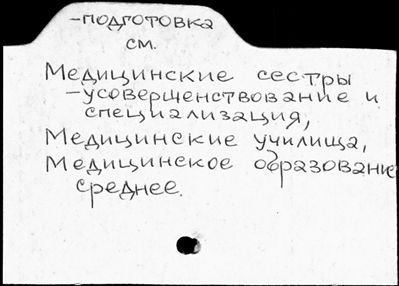 -подготовка
см.
Медицинские сестры
-усовершенствование и
специализация,
Медицинские училища,
Медицинское образование
среднее.